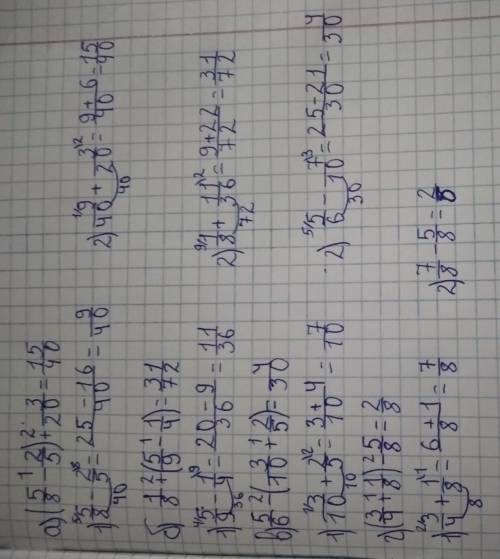 а) (5/8 - 2/5) + 3/20 = 15/40
1) 5/8 - 2/5 = 25-16/40 = 9/40
2) 9/40 + 3/20 = 9+6/40 = 15/40
б) 1/8 + (5/9 - 1/4) = 31/72
1) 5/9 - 1/4 = 20-9/36 = 11/36
2) 1/8 + 11/36 = 9+22/72 = 31/72
в) 5/6 - (3/10 + 2/5) = 4/30
1) 3/10 + 2/5 = 3+4/10 = 7/10
2) 5/6 - 7/10 = 25-21/30 = 4/30
г) (3/4 + 1/8) - 5/8 = 2/8
1) 3/4 + 1/8 = 6+1/8 = 7/8
2) 7/8 - 5/8 = 2/8